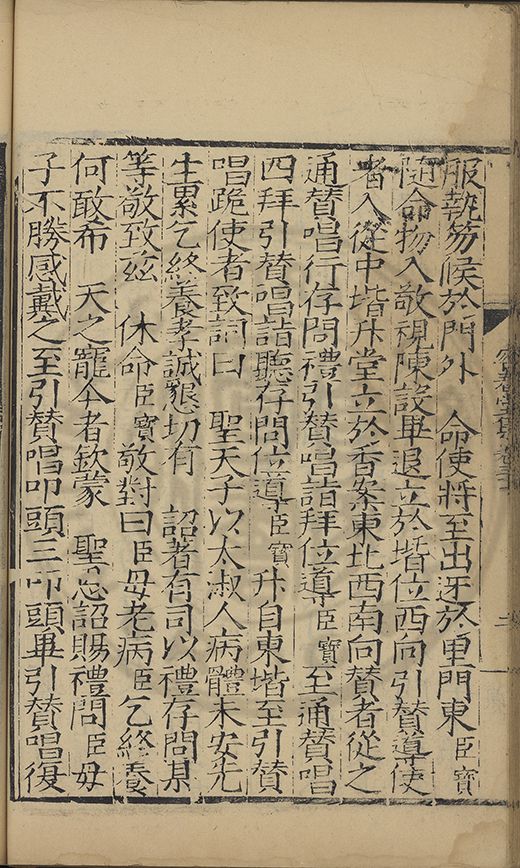 服執笏候於門外　命使將至出迓於里門東臣寶
隨命物入敬視陳設畢退立於堦位西向引贊導使
者入從中堦升堂立於香案東北西南向贊者從之
通贊唱行存問禮引贊唱詣拜位導臣寶至通贊唱
四拜引贊唱詣聽存問位導臣寶升自東堦至引贊
唱跪使者致詞曰　聖天子以太淑人病體未安先
生累乞終養孝誠懇切有　詔者有司以禮存問某
等敬致兹　休命臣寶敬對曰臣母老病臣乞終養
何敢希　天之寵今者欽蒙　聖恩詔賜禮問臣母
子不勝感戴之至引贊唱叩頭三叩頭畢引贊唱復
容春堂集卷
二